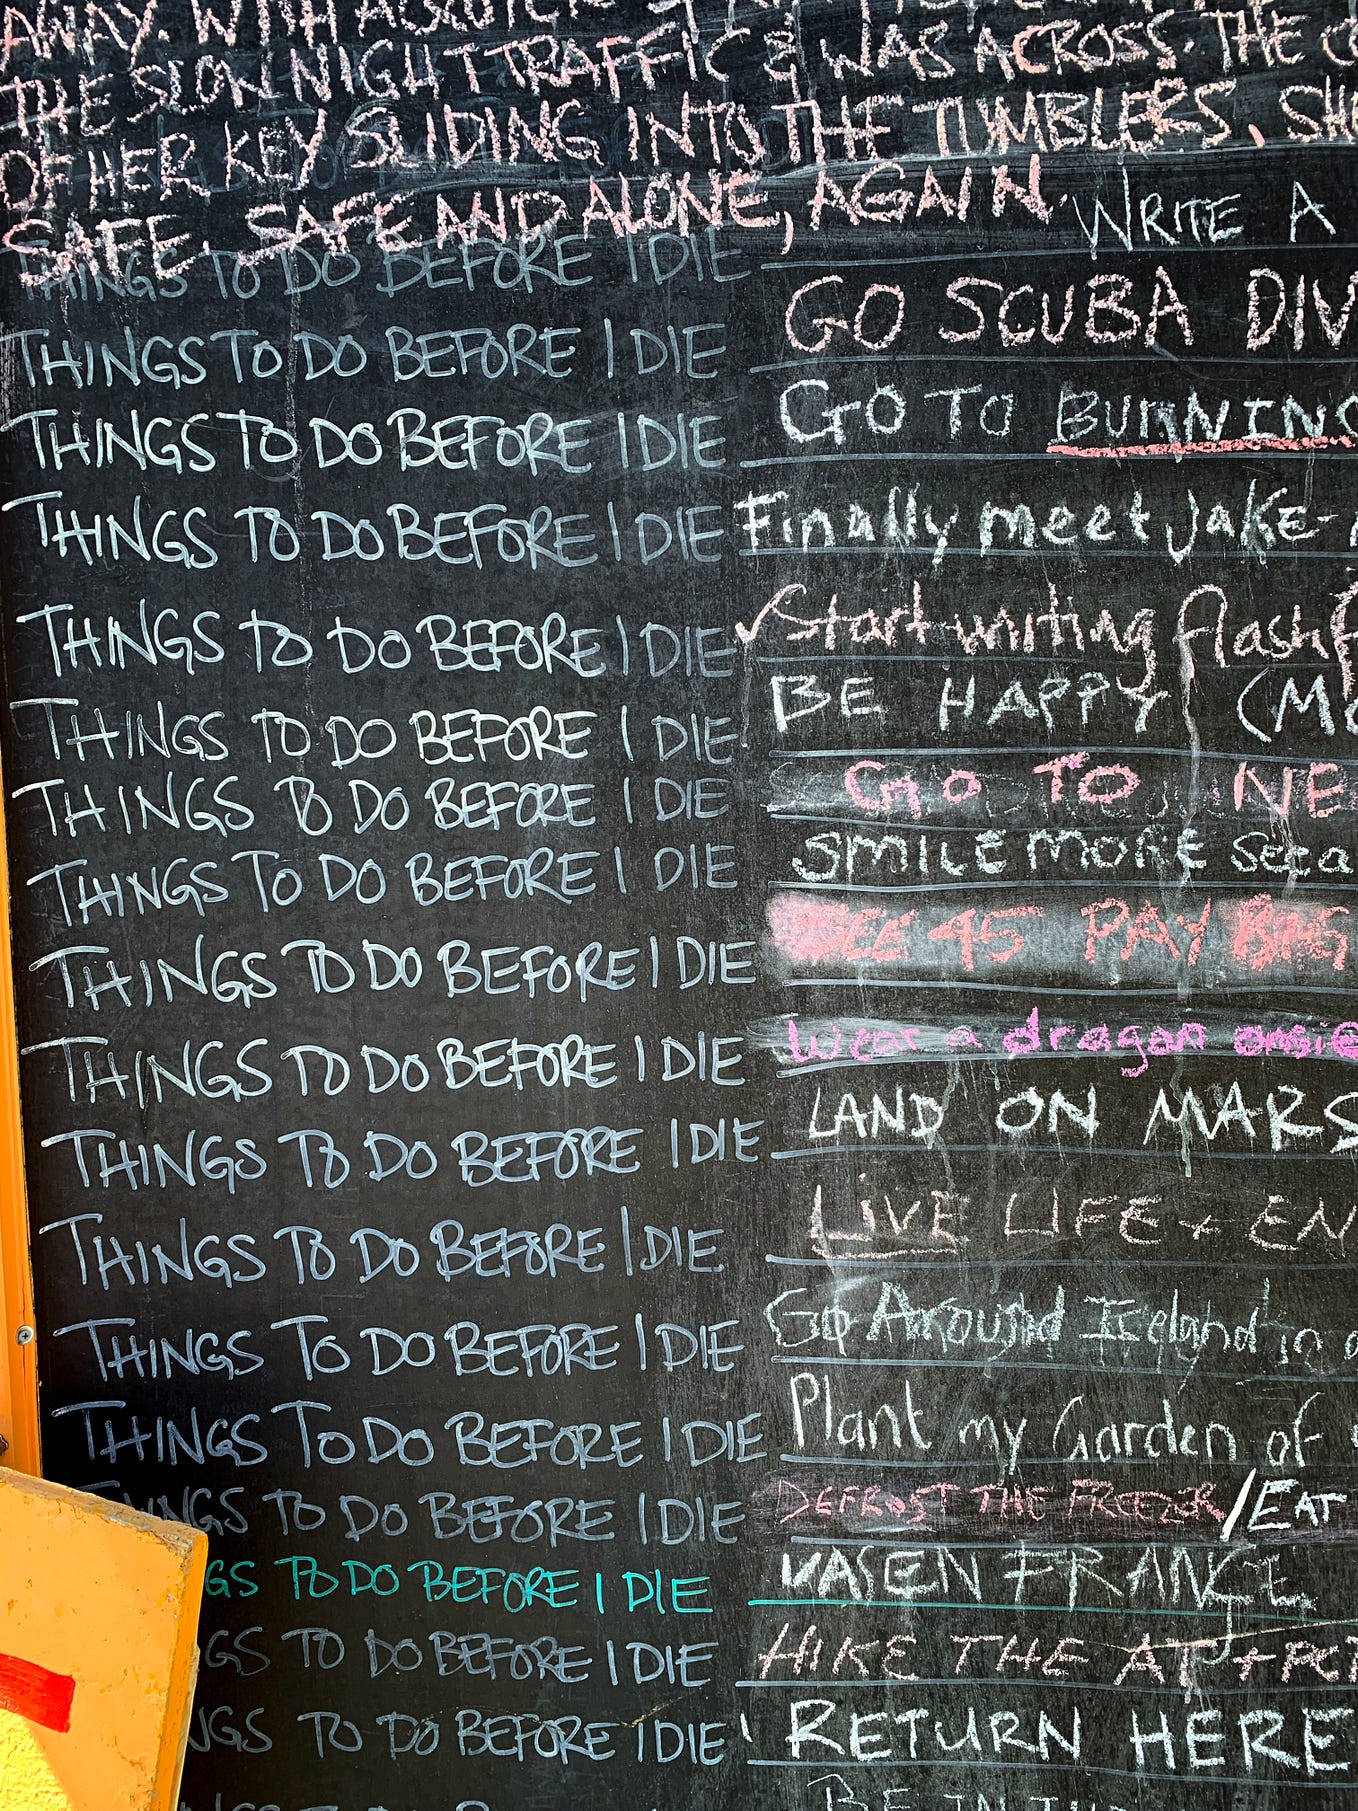 AWAY. WITH
THE SLOW NIGHT TRAFFIC & WAS ACROSS. THE
OF HER KEY SLIDING INTO THE TUMBLERS, SH
SAFE. SAFE AND ALONE, AGAIN.
THINGS TO DO BEFORE I DIE WRITE A
THINGS TO DO BEFORE I DIE GO SCUBA DIV
THINGS TO DO BEFORE I DIE GO TO BURNING
THINGS TO DO BEFORE I DIE Finally meet Jake-
THINGS TO DO BEFORE I DIE ✓Start writing flash f
THINGS TO DO BEFORE I DIE BE HAPPY (MO
THINGS TO DO BEFORE I DIE GO TO NE
THINGS TO DO BEFORE I DIE SMILE MORE See a
THINGS TO DO BEFORE I DIE SEE 45 PAY BIG
THINGS TO DO BEFORE I DIE Wear a dragon onsie
THINGS TO DO BEFORE I DIE LAND ON MARS
THINGS TO DO BEFORE I DIE LIVE LIFE + EN
THINGS TO DO BEFORE I DIE Go Around Iceland in a
THINGS TO DO BEFORE I DIE Plant my Garden of
THINGS TO DO BEFORE I DIE DEFROST THE FREEZER /EAT
GS TO DO BEFORE I DIE FRANCE
GS TO DO BEFORE I DIE HIKE THE AT
NGS TO DO BEFORE I DIE RETURN HERE